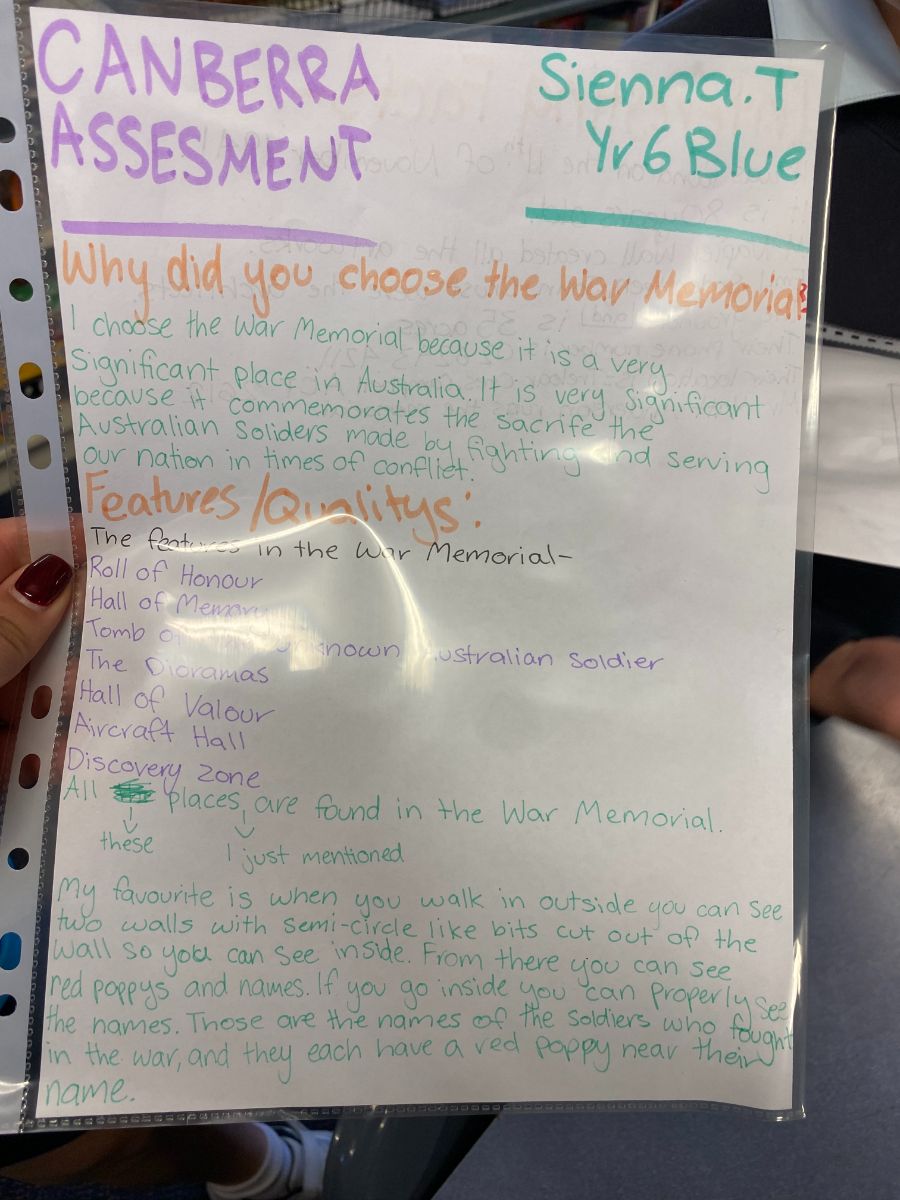 CANBERRA
ASSESMENT
Sienna.T
Yr 6 Blue
Why did you choose the War Memorial?
I choose the War Memorial because it is a very
Significant place in Australia. It is very significant
because it commemorates the sacrife the
Australian Soliders made by fighting and serving
our nation in times of conflict.
Features/Qualitys:
The features in the War Memorial-
Roll of Honour
Hall of Memory
Tomb of unknown Australian Soldier
The Dioramas
Hall of Valour
Aircraft Hall
Discovery Zone
All places, are found in the War Memorial.
these I just mentioned
My favourite is when you walk in outside you can see
two walls with semi-circle like bits cut out of the
wall so you can see inside. From there you can see
red poppys and names. If you go inside you can properly see
the names. Those are the names of the soldiers who fought
in the war, and they each have a red poppy near their
name.